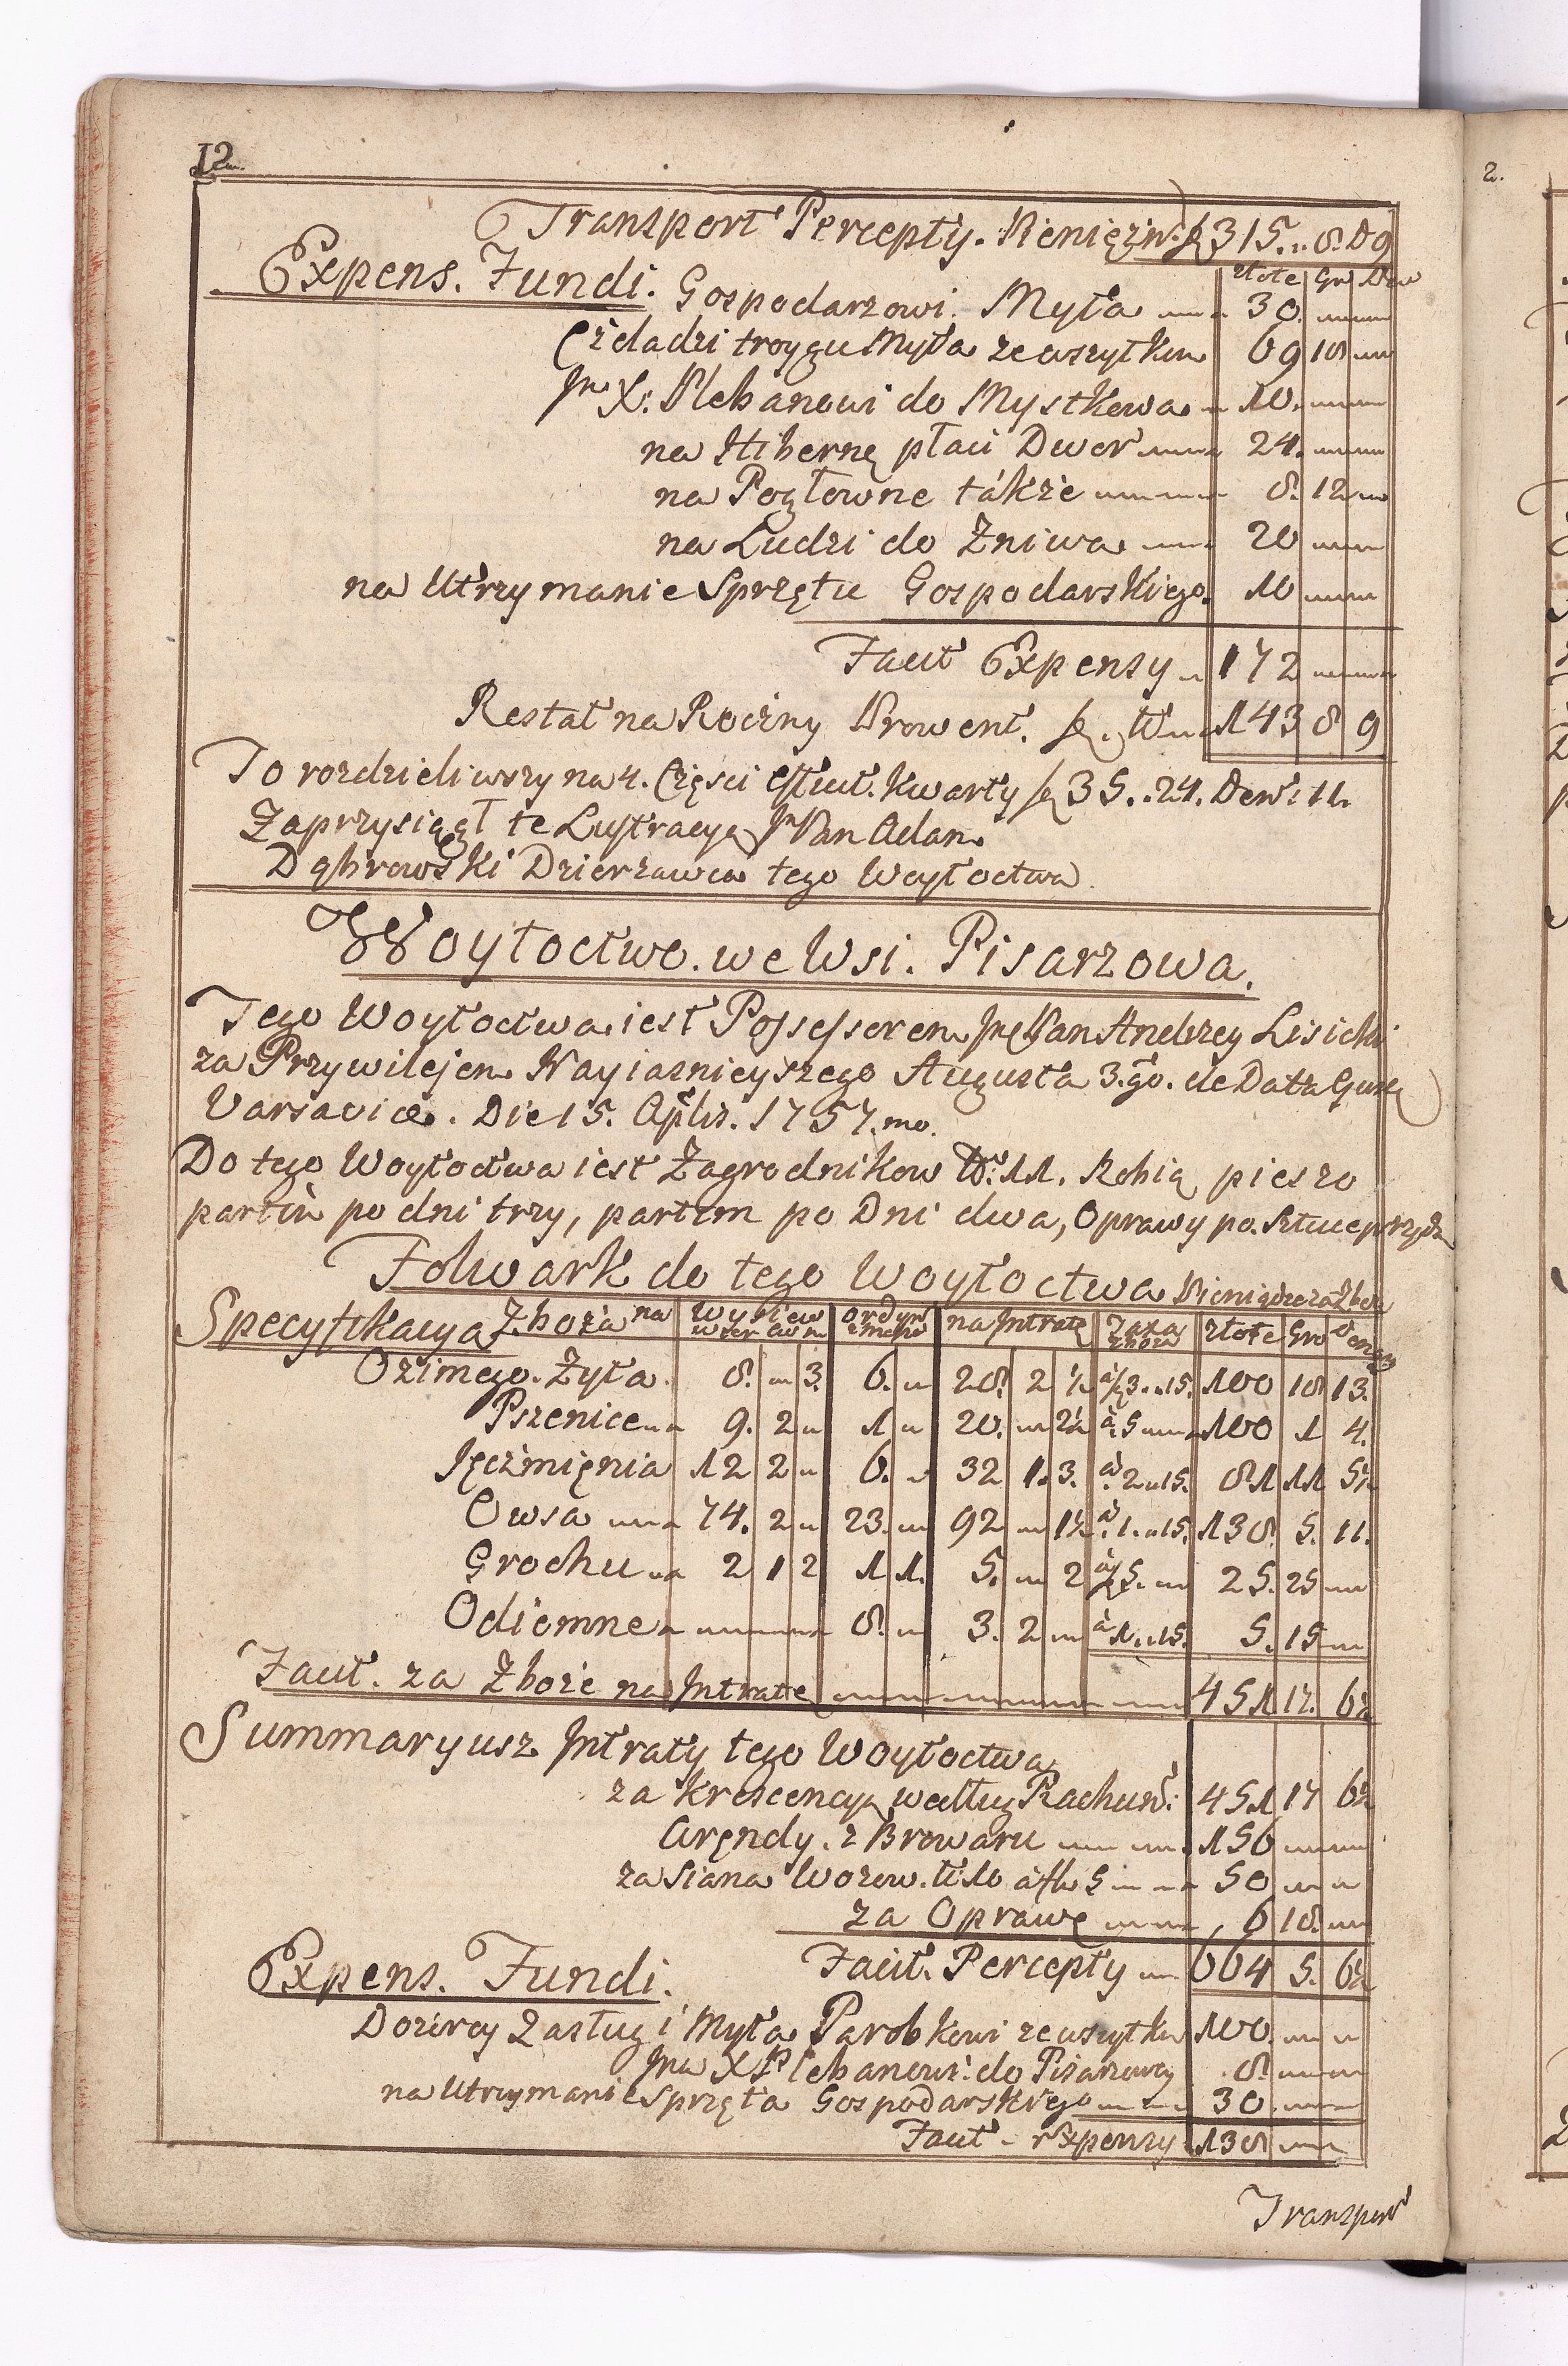 12.
Transport Percepty. Pieniężn: ƶ 315. 8. D 9
złote Gr Den
Expens. Fundi. Gospodarzowi. Myta 30.
Czeladzi troygu Myta ze wszytkim 69 18
Jm X. Plebanowi do Mystkowa 10.
na Hibernę płaci Dwor 24.
na Pogłowne tákże 8. 12
na Ludzi do Żniwa 20
na Utrzymanie Sprzętu Gospodarskiego. 10
Facit Expensy 172
Restat na Roczny Prowent. 143 8 9
To rozdzieliwszy na 4. Częsci Kwarty ƶ 35. 24. Den: 11.
Zaprzysiągł te Lustracyą Jm Pan Adam
Dąbrowski Dzierzawca tego Woytoctwa.
Woytoctwo. we Wsi. Pisarzowa.
Tego Woytoctwa iest Possessorem Jm Pan Andrzey Lisicki
za Przywilejem Nayiasnieyszego Augusta 3.go. de Data
Varsaviæ. Die 15. Aplis. 1757.mo.
Do tego Woytoctwa iest Zagrodnikow N: 11. Robią pieszo
partim po dni trzy, partim po Dni dwa, Oprawy po. Sztuce przędą
Folwark do tego Woytoctwa Pieniądze za Zboże
Specyfikacya Zboża na Wysiew ordyn na Intratę Taxa Zboża złote Gro Deną
Ozimego. Żyta. 8. 3. 6. 28. 2 ½ à ƶ 3. 15. 100 18 13.
Pszenice 9. 2 1 20. 2½ à. 5 100 1 4.
Jęczmięnia 12 2 6. 32 1. 3. à. 2. 15. 81 11 5½
Owsa 74. 2 23. 92 1½ à. 1. 15. 138. 5. 11.
Grochu 2 1 2 1 1. 5. 2 à ƶ 5. 25. 25
Odiemne 8. 3. 2 à 1. 15. 5. 15
Facit. za Zboże na Intratę 451 17. 6½
Summaryusz Intraty tego Woytoctwa
za Krescencyą według Rachun: 451 17 6½
Aręndy. z Browaru 156
za Siana Wozow. N 10 à ƶ 5 50
za Oprawę 6 18.
Facit. Percepty 664 5. 6½
Expens. Fundi.
Dozorcy Zasług i Myta Parobkowi ze wszytkim 100.
Jm X Plebanowi do Pisarzowy 8.
na Utrzymanie Sprzęta Gospodarskiego 30
Facit Expensy 138
Transport
2.